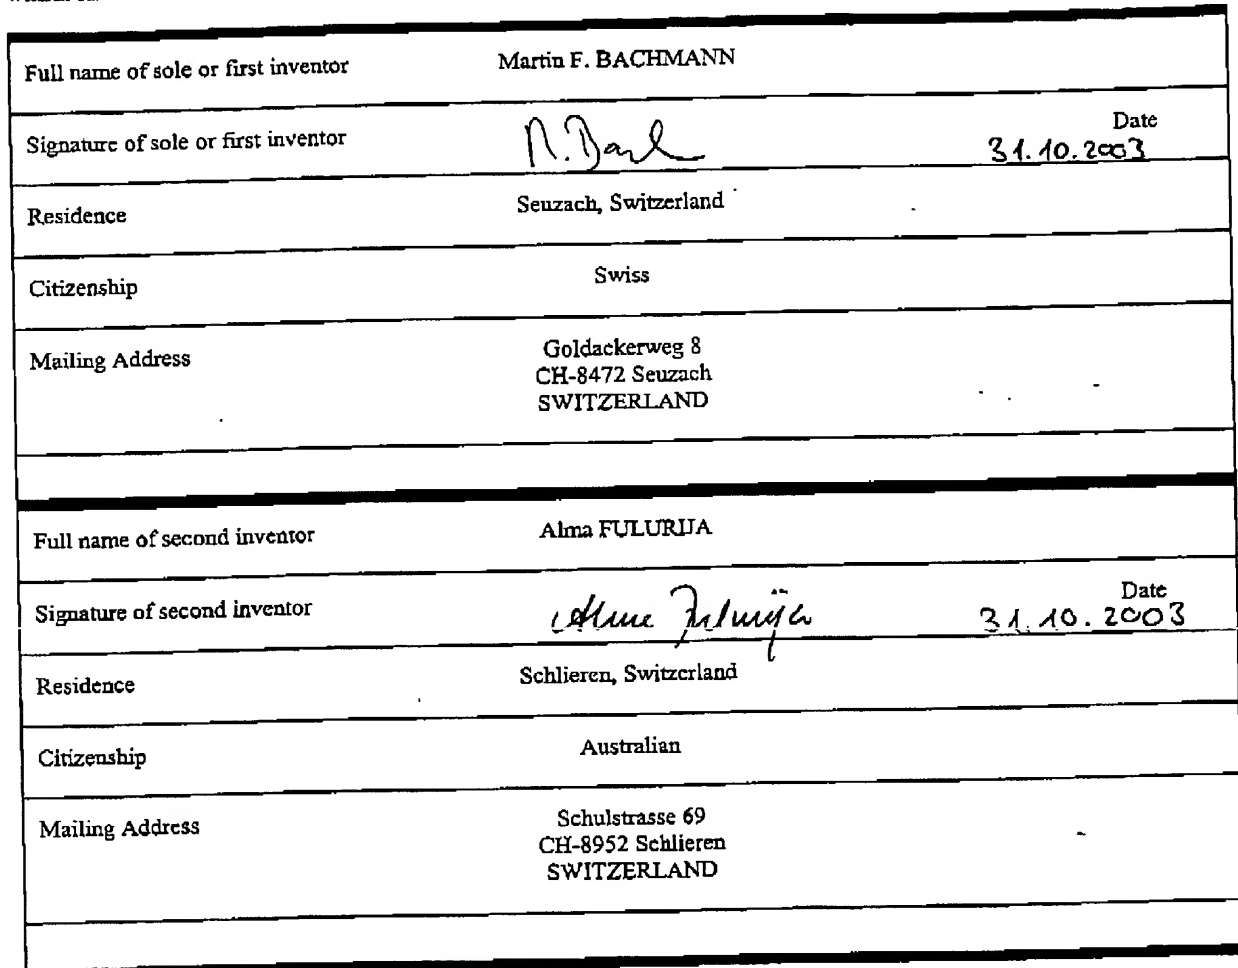 Full name of sole or first inventor Martin F. BACHMANN
Date
Signature of sole or first inventor 31.10.2003
Residence Seuzach, Switzerland
Citizenship Swiss
Mailing Address Goldackerweg 8
CH-8472 Seuzach
SWITZERLAND
Full name of second inventor Alma FULURIJA
Date
Signature of second inventor Alma Fulurija 31.10.2003
Residence Schlieren, Switzerland
Citizenship Australian
Mailing Address Schulstrasse 69
CH-8952 Schlieren
SWITZERLAND